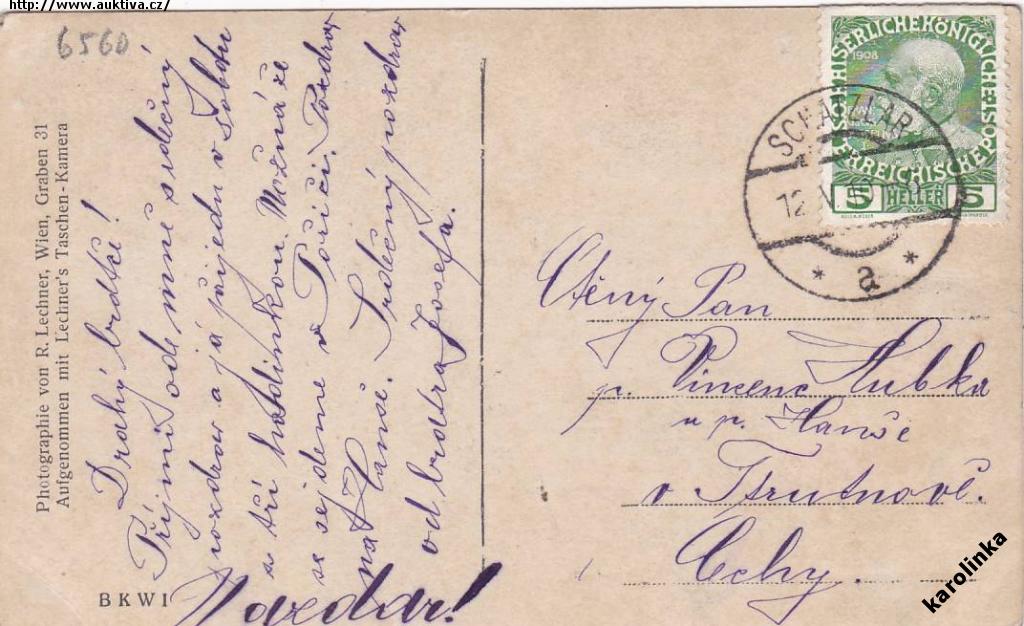 http://www.auktiva.cz/
6560
Photographie von R. Lechner, Wien, Graben 31
Aufgenommen mit Lechner's Taschen-Kamera
Drahý bratře!
Příjmi ode mně srdečný
pozdrav a já přijedu v Sobotu
s tří hodinkou. Možná že
se sejdeme v Poříčí. Pozdrav
na Hanše. Srdečný pozdrav
od bratra Josefa.
Nazdar!
BKWI
KAISERLICHEKÖNIGLICHE ÖSTERREICHISCHE POST
1908
5 HELLER 5
SCHATZLAR
12 V
* a *
Ctěný Pan
p. Vincenc Hubka
u p. Hanše
v Trutnově.
Čechy.
karolinka